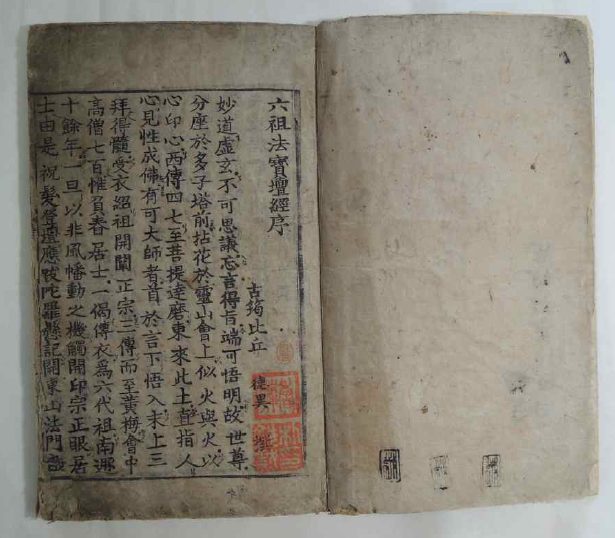 六祖法寶壇經序
古筠比丘 德異 撰
妙道虛玄不可思議忘言得旨端可悟明故世尊
分座於多子塔前拈花於靈山會上似火與火以
心印心西傳四七至菩提達磨東來此土直指人
心見性成佛有可大師者首於言下悟入末上三
拜得髓受衣紹祖開闡正宗三傳而至黃梅會中
高僧七百惟負舂居士一偈傳衣爲六代祖南遯
十餘年一旦以非風幡動之機觸開印宗正眼居
士由是祝髮登壇應跋陀羅懸記開東山法門